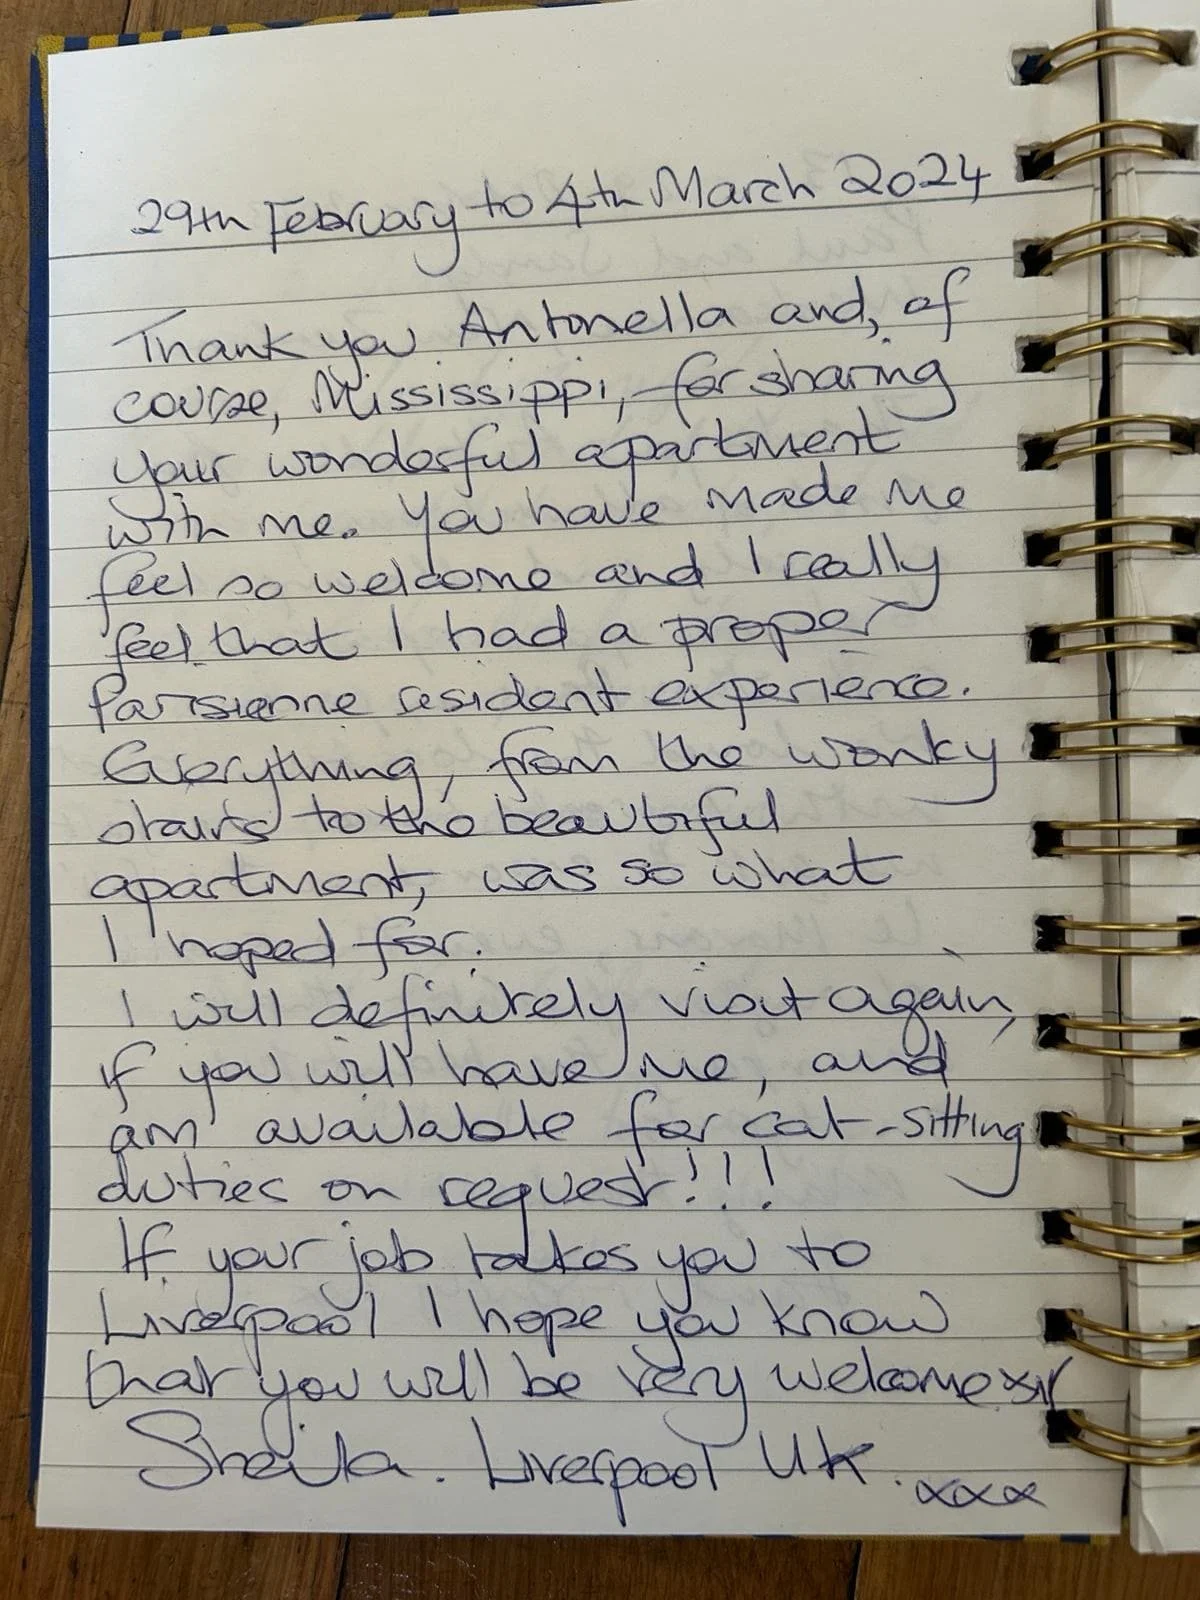 29th February to 4th March 2024
Thank you Antonella and, of
course, Mississippi, for sharing
your wonderful apartment
with me. You have made me
feel so welcome and I really
feel that I had a proper
Parisienne resident experience.
Everything, from the wonky
stairs to the beautiful
apartment, was so what
I hoped for.
I will definitely visit again,
if you will have me, and
am available for cat-sitting
duties on request!!!
If your job takes you to
Liverpool I hope you know
that you will be very welcome
Sheila. Liverpool UK.
xxx